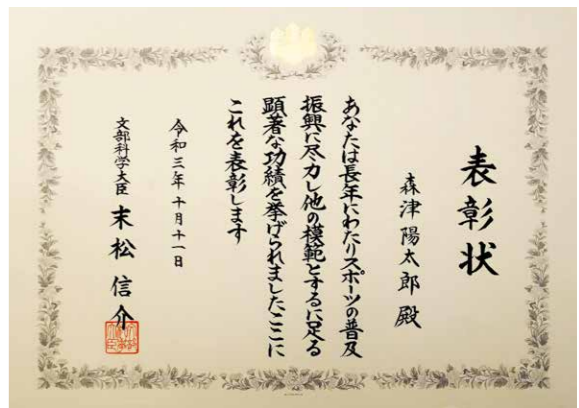 表彰状
森津陽太郎殿
あなたは長年にわたりスポーツの普及
振興に尽力し他の模範とするに足る
顕著な功績を挙げられましたここに
これを表彰します
令和三年十月十一日
文部科学大臣 末松信介